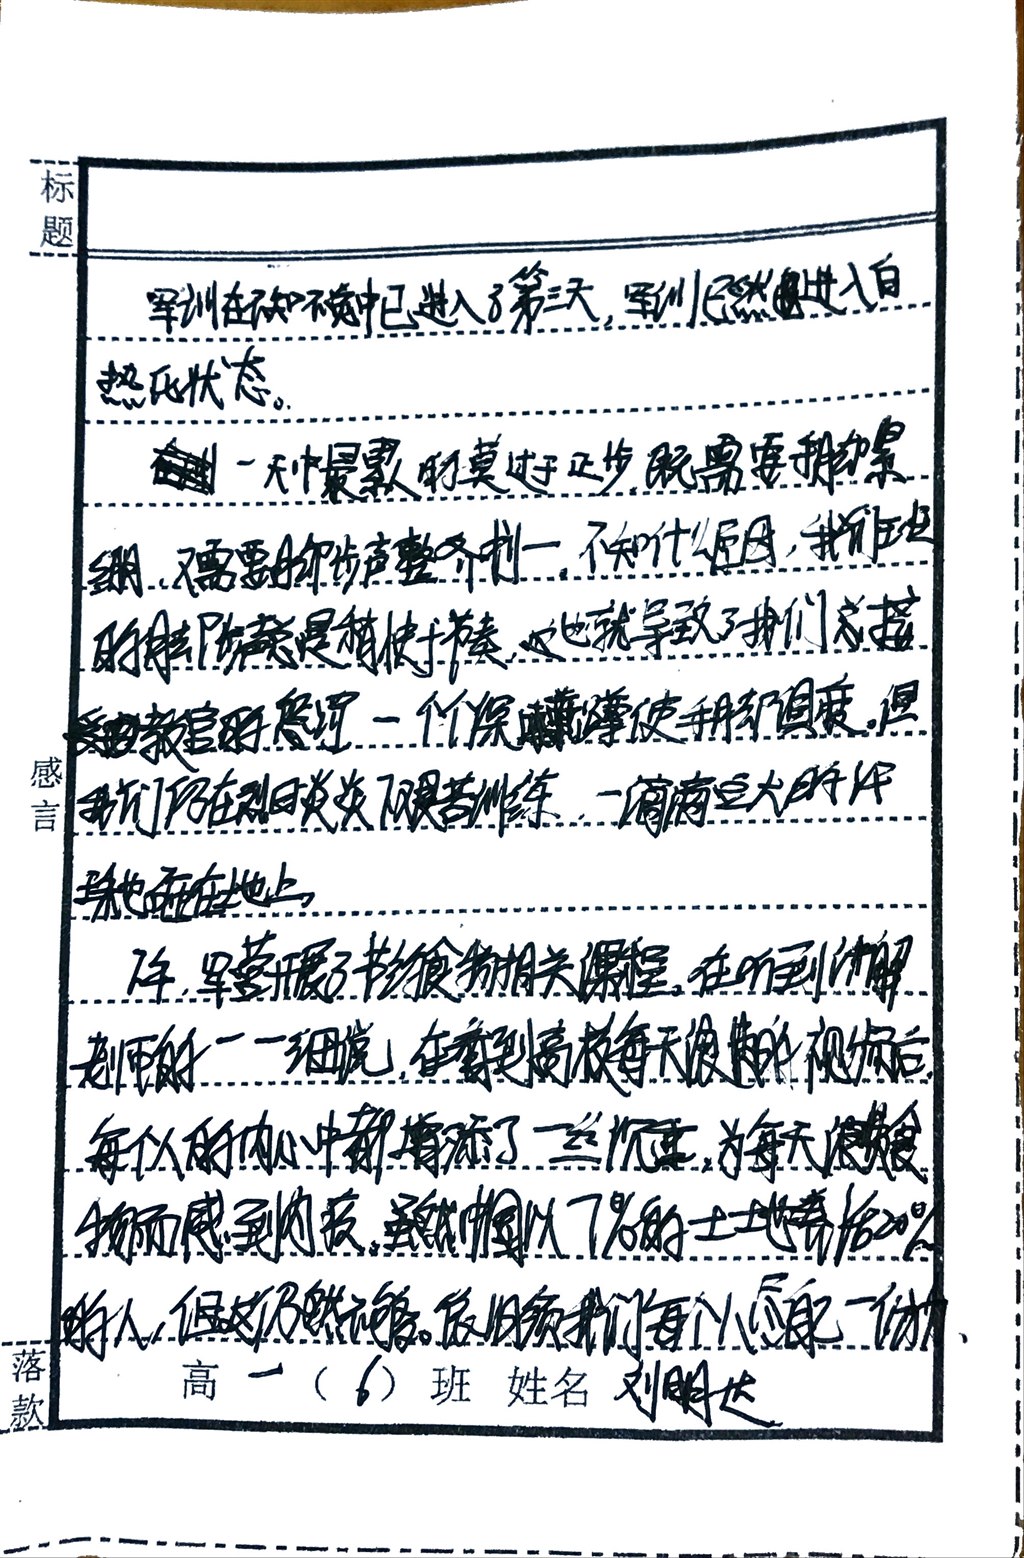 标题
军训在不知不觉中已进入了第三天，军训已然进入白
热化状态。
一天中最累人的莫过于正步，既需要手脚紧
绷，又需要脚步声整齐划一，不知什么原因，我们班
的脚步声总是稍快于节奏，也就导致了我们总接
受教官的怒河，一个个深蹲使手脚俱疲。但
我们仍在烈日炎炎下艰苦训练，一滴滴豆大的汗
珠也砸在地上。
下午，军营开展了节约食物相关课程。在听到讲解
老师的一一细说，在看到高校每天浪费的视频后，
每个人的内心中都增添了一丝沉重，为每天浪费食
物而感到内疚。虽然中国以7%的土地养活20%
的人，但这仍然不够。依旧须我们每个人尽自己一份力、
感言
落款
高一（6）班 姓名 刘明达